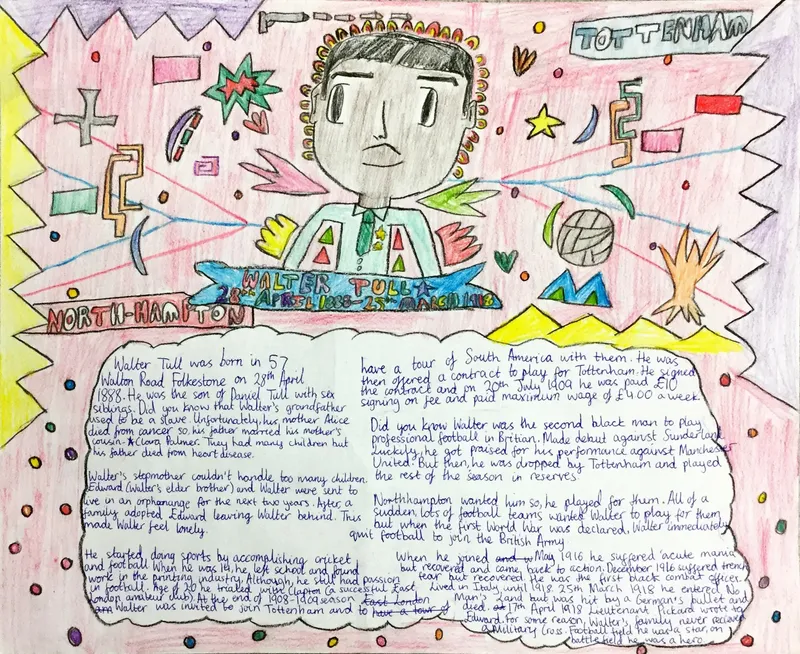 TOTTENHAM
WALTER TULL
28th APRIL 1888-25th MARCH 1918
NORTH-HAMPTON
Walter Tull was born in 57
Walton Road Folkestone on 28th April
1888. He was the son of Daniel Tull with sex
siblings. Did you know that Walter's grandfather
used to be a slave. Unfortunately, his mother Alice
died from cancer so, his father married his mother's
cousin. Clara Palmer. They had many children but
his father died from heart disease.
Walter's stepmother couldn't handle too many children.
Edward (Walter's elder brother) and Walter were sent to
live in an orphanunge for the next two years. After, a
family adopted Edward leaving Walter behind. This
made Walter feel lonely.
He started doing sports by accomplishing cricket
and football. When he was 14, he left school and found
work in the printing industry. Although, he still had passion
in football. Age of 20 he trialed with Clapton (a successful East
London amateur club). At the end of 1908-1909 season East London
Walter was invited to join Tottenham and to have a tour of
have a tour of South America with them. He was
then offered a contract to play for Tottenham. He signed
the contract and on 20th July 1909 he was paid £10
signing on fee and paid maximum wage of £4.00 a week.
Did you know Walter was the second black man to play
professional football in Britian. Made debut against Sunderland
Luckily, he got praised for his performance against Manchester
United. But then, he was dropped by Tottenham and played
the rest of the season in reserves.
Northhampton wanted him so, he played for them. All of a
sudden, lots of football teams wanted Walter to play for them
but when the first World War was declared, Walter immediately
quit football to join the British Army
When he joined and w May 1916 he suffered 'acute mania'
but recovered and came back to action. December 1916 suffered trench
fear but recovered. He was the first black combat officer.
Lived in Italy until 1918. 25th March 1918 he entered No
Man's Land but was hit by a German's bullet and
died. at 17th April 1918 Lieutenant Pickard wrote to
Edward. For some reason, Walter's family never recieved
a Military Cross. Football field he was a star, on
battlefield he was a hero.